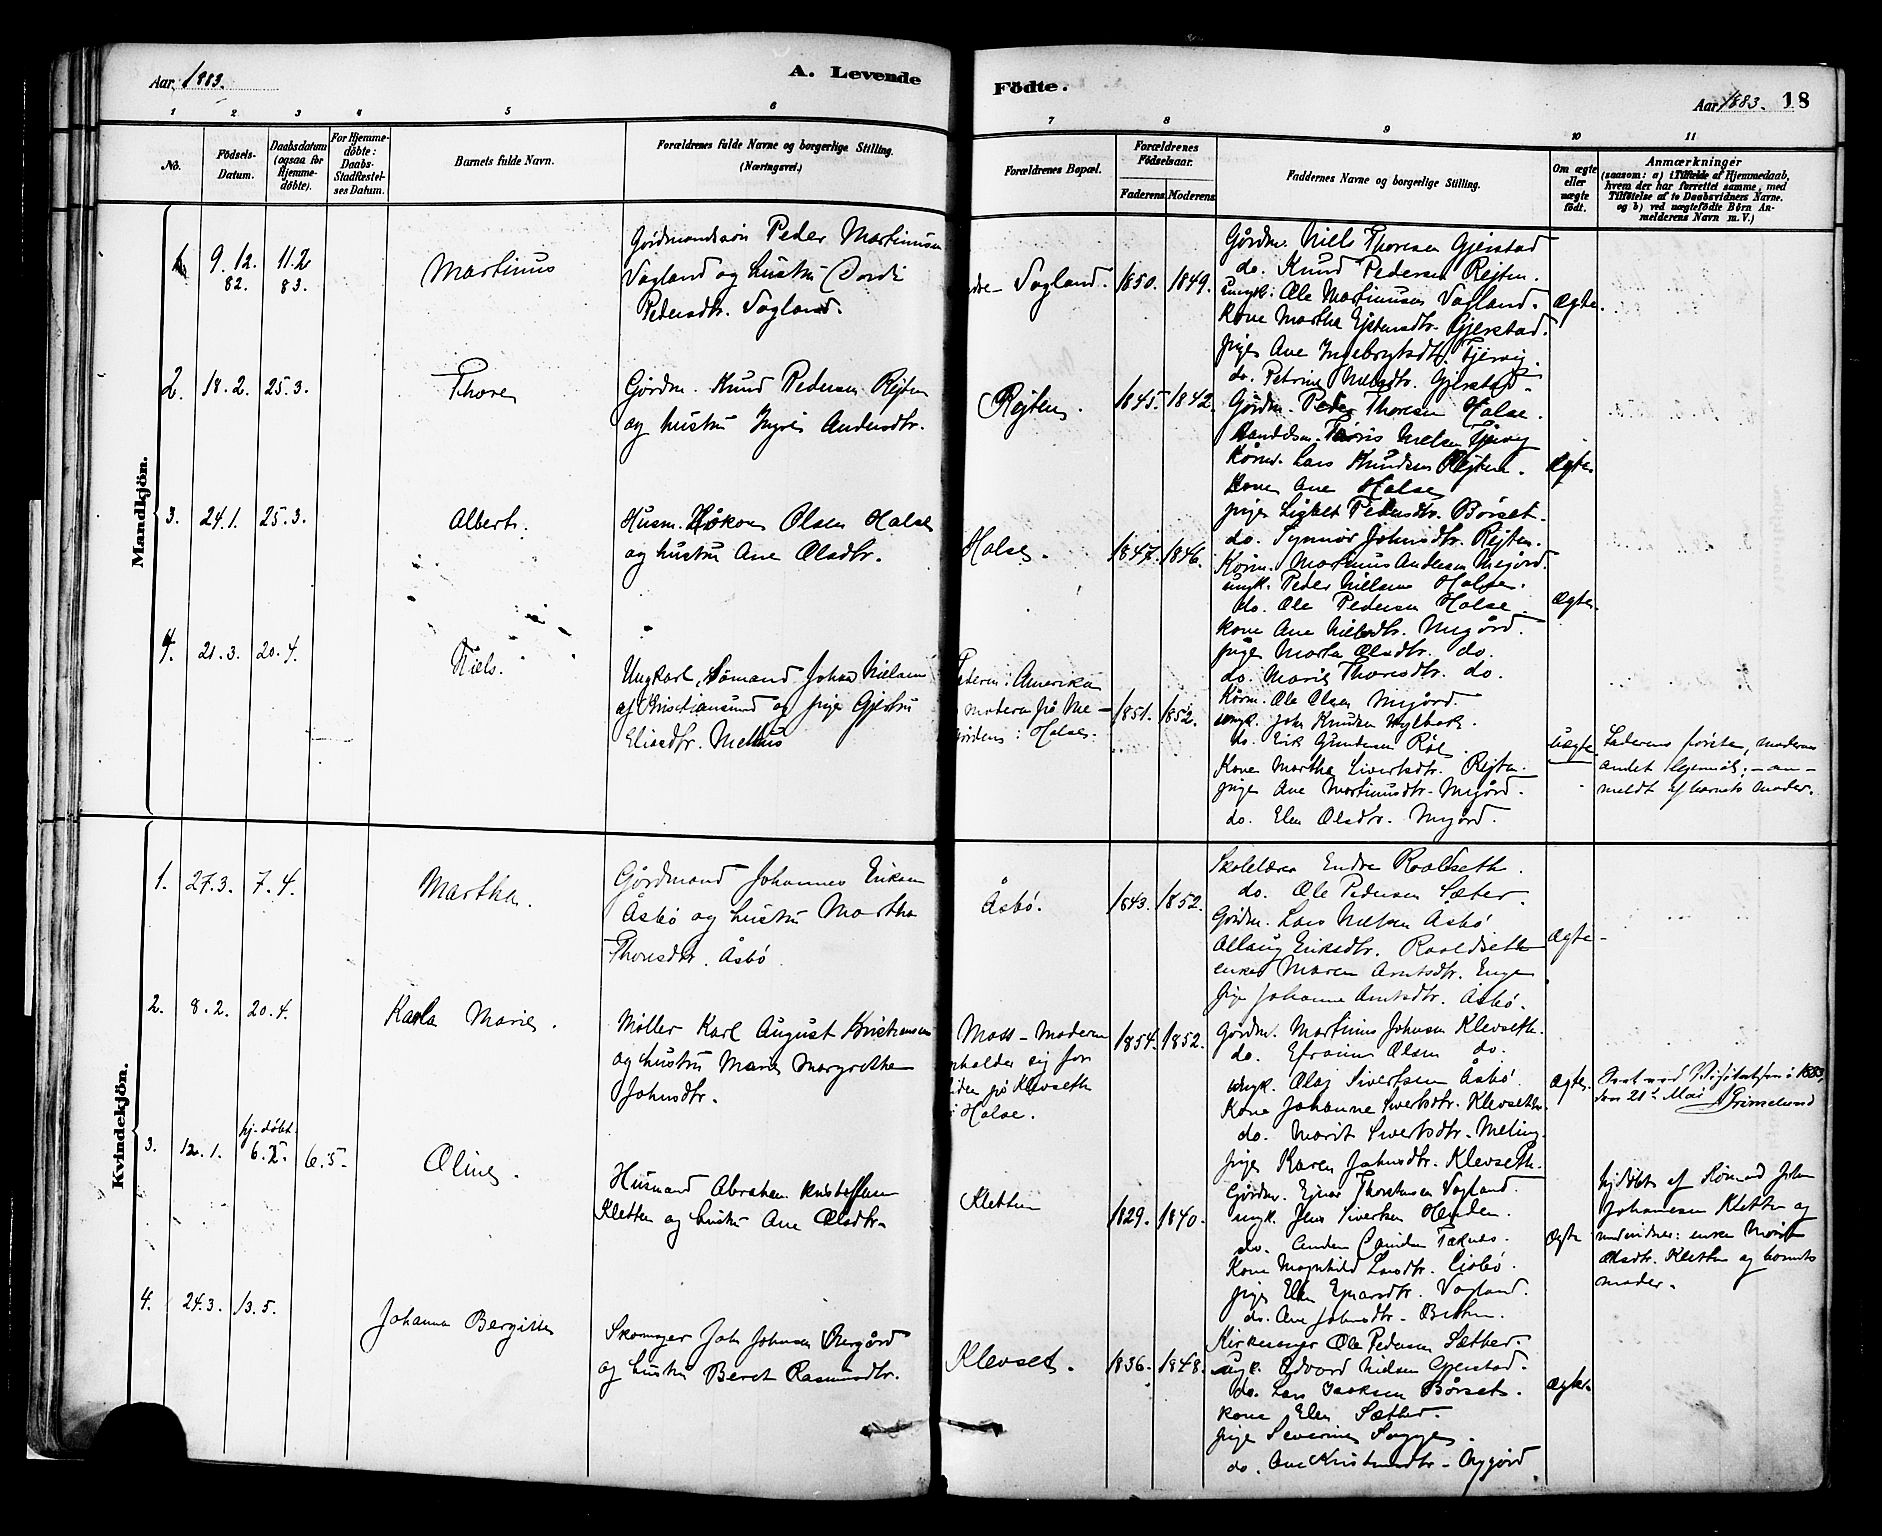 Aar 1883.
A. Levende
Födte.
Aar 1883. 18
1 2 3 4 5 6
7 8 9 10 11
No.
Födsels-Datum.
Daabsdatum (ogsaa for Hjemme-döbte).
For Hjemme-döbte: Daabs-Stadfæstel-ses Datum.
Barnets fulde Navn.
Forældrenes fulde Navne og borgerlige Stilling. (Næringsvei.)
Forældrenes Bopæl.
Forældrenes Födselsaar.
Faderens. Moderens.
Faddernes Navne og borgerlige Stilling.
Om ægte eller uægte födt.
Anmærkninger
(saasom: a) i Tilfælde af Hjemmedaab,
hvem der har forrettet samme, med
Tilföielse af to Daabsvidners Navne.
og b) ved uægtefödte Börn An-
melderens Navn m. V.)
Mandkjön.
9. 12. 82.
11. 2 83.
Martinus
Gårdmandssön Peder Martinusen
Vagland og hustru Jordi
Pedersdtr. Vagland.
Vagland. 1850. 1849.
Gårdm. Niels Thoresen Gjerstad
do. Knud Pedersen Rejten.
ungk. Ole Martinusen Vagland.
Kone Martha Ejstensdtr. Gjerstad.
pige Ane Ingebrigtsdtr.
do. Petrine Nielsdtr. Gjerstad.
Ægte.
2. 18. 2. 25. 3.
Thore
Gårdm. Knud Pedersen Rejten
og hustru Ingeri Andersdtr.
Rejten. 1845. 1842.
Gårdm. Peder Thoresen Halse.
Nielsen
Lars Knudsen Rejten.
Kone Ane Halse
pige Pedersdtr. Börset.
do. Synnör Johnsdtr. Rejten.
Ægte.
3. 24. 1. 25. 3.
Albert.
Husm. Håkon Olsen Halse
og hustru Ane Olsdtr.
Halse. 1847. 1846.
Martinus Andersen Megård.
ungk. Peder Nielsen Halse.
do. Ole Pedersen Halse.
Kone Ane Nielsdtr. Megård.
pige Marta Olsdtr. do.
do. Marit Thoresdtr. do.
Ægte.
4. 21. 3. 20. 4.
Niels.
Ungkarl, Sömand Johan Nielsen
af Kristiansund og pige Gjertru
Eliasdtr. Melhus
Faderen: Amerika
moderen på Me-
gårdens: Halse.
1851. 1852.
Ole Olsen Megård.
ungk. John Knudsen
do. Erik Gundersen
Kone Martha Sivertsdtr. Rejten.
pige Ane Martinusdtr. Megård.
do. Elen Olsdtr. Megård.
Uægte
Faderens förste, moderens
andet lejermål; - an-
meldt af barnets moder.
Kvindekjön.
1. 27. 3. 7. 4.
Martha.
Gårdmand Johannes Eriksen
Åsbö og hustru Martha
Thoresdtr. Åsbö.
Åsbö. 1843. 1852.
Skolelærer Endre Roaldseth.
do. Ole Pedersen Sæter.
Gårdm. Lars Nielsen Åsbö
Allaug Eriksdtr. Roaldseth
enke Maren Arntsdtr. Enge
pige Johanne Arntsdtr. Åsbö.
Ægte
2. 8. 2. 20. 4.
Karla Marie.
Möller Karl August Kristiansen
og hustru Marie Margrethe
Johnsdtr.
Moss - Moderen
opholder sig for
tiden på Klevseth
i Halse.
1854. 1852.
Gårdm. Martinus Johnsen Klevseth.
do. Efraim Olsen do.
ungk. Olaj Sivertsen Åsbö.
Kone Johanne Sivertsdtr. Klevseth.
do. Marit Sivertsdtr. Meling.
pige Karen Johnsdtr. Klevseth.
Ægte.
ved Visitatsen i 1883,
den 21de Mai Grimelund
3. 12. 1.
hj. döbt. 6. 2.
6. 5.
Oline.
Husmand Abraham Kristoffersen
Kletten og hustru Ane Olsdtr.
Kletten
1829. 1840.
Gårdm. Ejnar Thorstensen Vagland.
ungk. Jens Sivertsen Henden.
do.
Kone Magnhild Larsdtr.
pige Elen Ejnarsdtr. Vagland.
do. Ane Johnsdtr.
Ægte
hjdöbt af John
Johannesen Kletten og
enke
Olsdtr. Kletten og barnets
moder.
4. 24. 3. 13. 5.
Johanna Bergitte
Skomager John Johnsen
og hustru Beret Rasmusdtr.
Klevset. 1836. 1848.
Kirkesanger Ole Pedersen Sæther.
ungk. Edvard Nielsen Gjerstad.
do. Lars Isaksen Börset.
kone Elen Sæther.
pige Severine
do. Ane Kristensdtr.
Ægte.